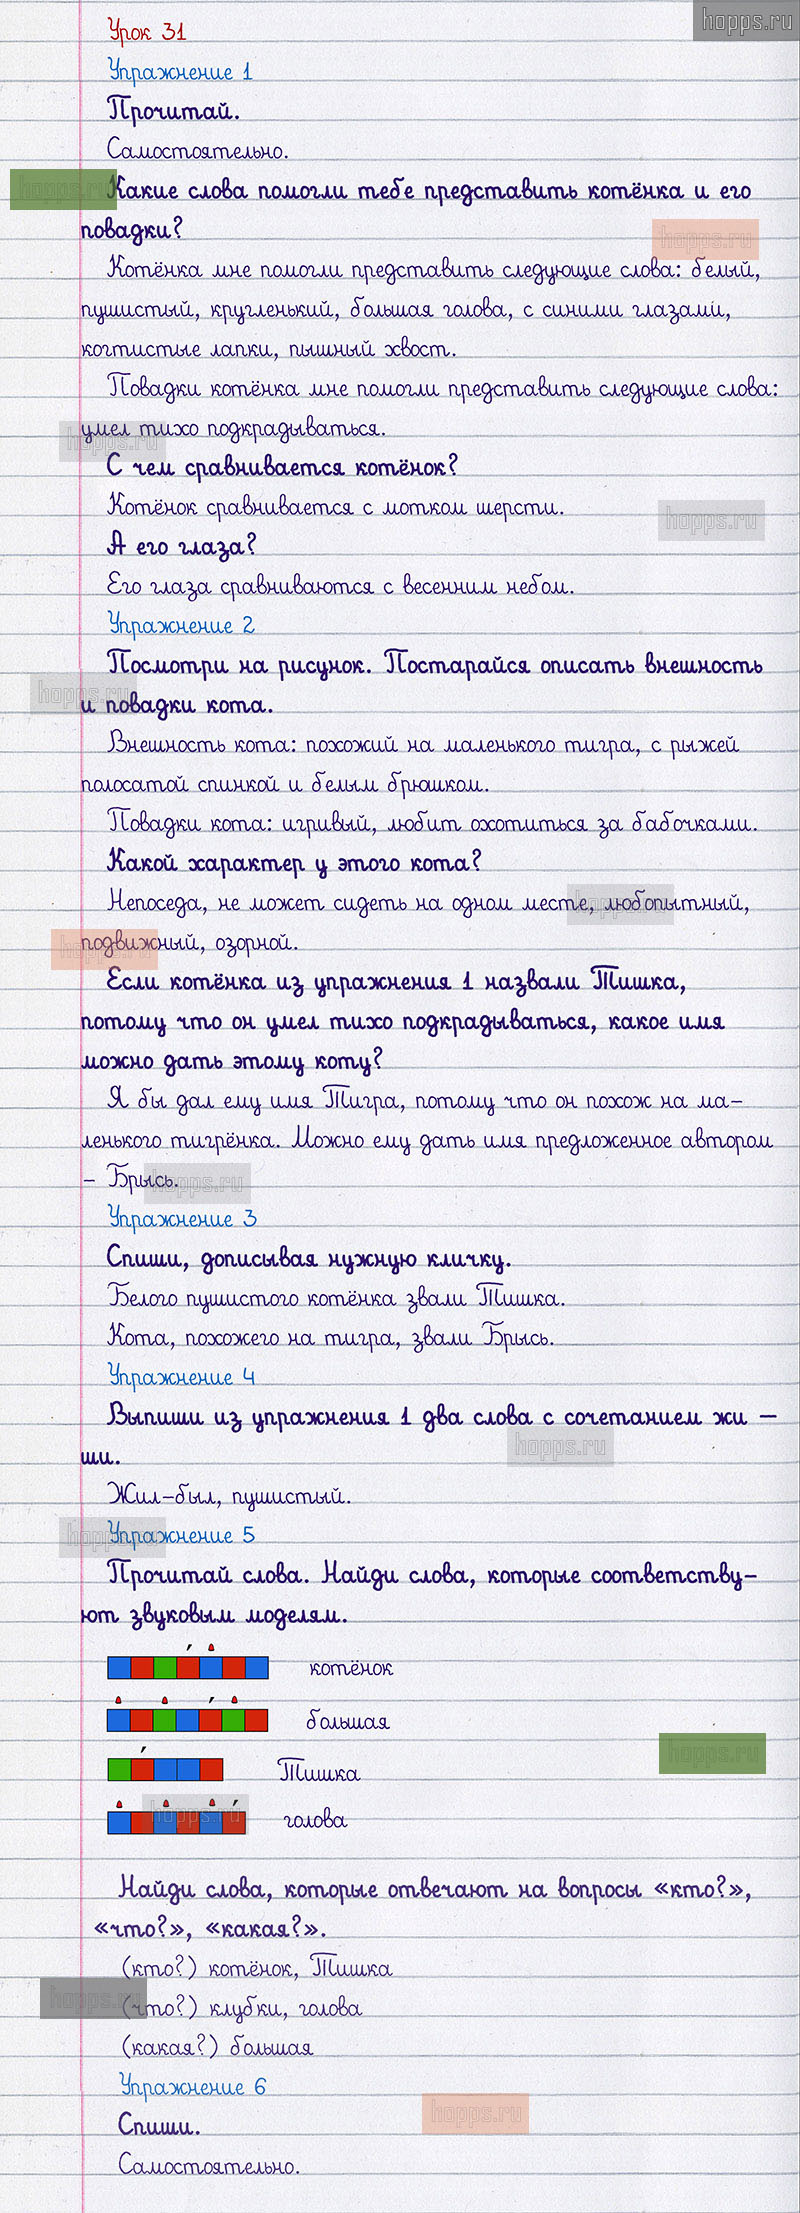 hopps.ru
Урок 31
Упражнение 1
Прочитай.
Самостоятельно.
hopps.ru
Какие слова помогли тебе представить котёнка и его
повадки?
hopps.ru
Котёнка мне помогли представить следующие слова: белый,
пушистый, кругленький, большая голова, с синими глазами,
когтистые лапки, пышный хвост.
Повадки котёнка мне помогли представить следующие слова:
умел тихо подкрадываться.
hopps.ru
С чем сравнивается котёнок?
Котёнок сравнивается с мотком шерсти.
hopps.ru
А его глаза?
Его глаза сравниваются с весенним небом.
Упражнение 2
Посмотри на рисунок. Постарайся описать внешность
hopps.ru
и повадки кота.
Внешность кота: похожий на маленького тигра, с рыжей
полосатой спинкой и белым брюшком.
Повадки кота: игривый, любит охотиться за бабочками.
Какой характер у этого кота?
Непоседа, не может сидеть на одном месте, любопытный,
hopps.ru
подвижный, озорной.
hopps.ru
Если котёнка из упражнения 1 назвали Тишка,
потому что он умел тихо подкрадываться, какое имя
можно дать этому коту?
Я бы дал ему имя Тигра, потому что он похож на ма-
ленького тигрёнка. Можно ему дать имя предложенное автором
- Брысь.
hopps.ru
Упражнение 3
Спиши, дописывая нужную кличку.
Белого пушистого котёнка звали Тишка.
Кота, похожего на тигра, звали Брысь.
Упражнение 4
Выпиши из упражнения 1 два слова с сочетанием жи –
ши.
hopps.ru
Жил-был, пушистый.
Упражнение 5
hopps.ru
Прочитай слова. Найди слова, которые соответству-
ют звуковым моделям.
котёнок
большая
Тишка
hopps.ru
голова
hopps.ru
Найди слова, которые отвечают на вопросы «кто?»,
«что?», «какая?».
(кто?) котёнок, Тишка
(что?) клубки, голова
hopps.ru
(какая?) большая
Упражнение 6
Спиши.
hopps.ru
Самостоятельно.